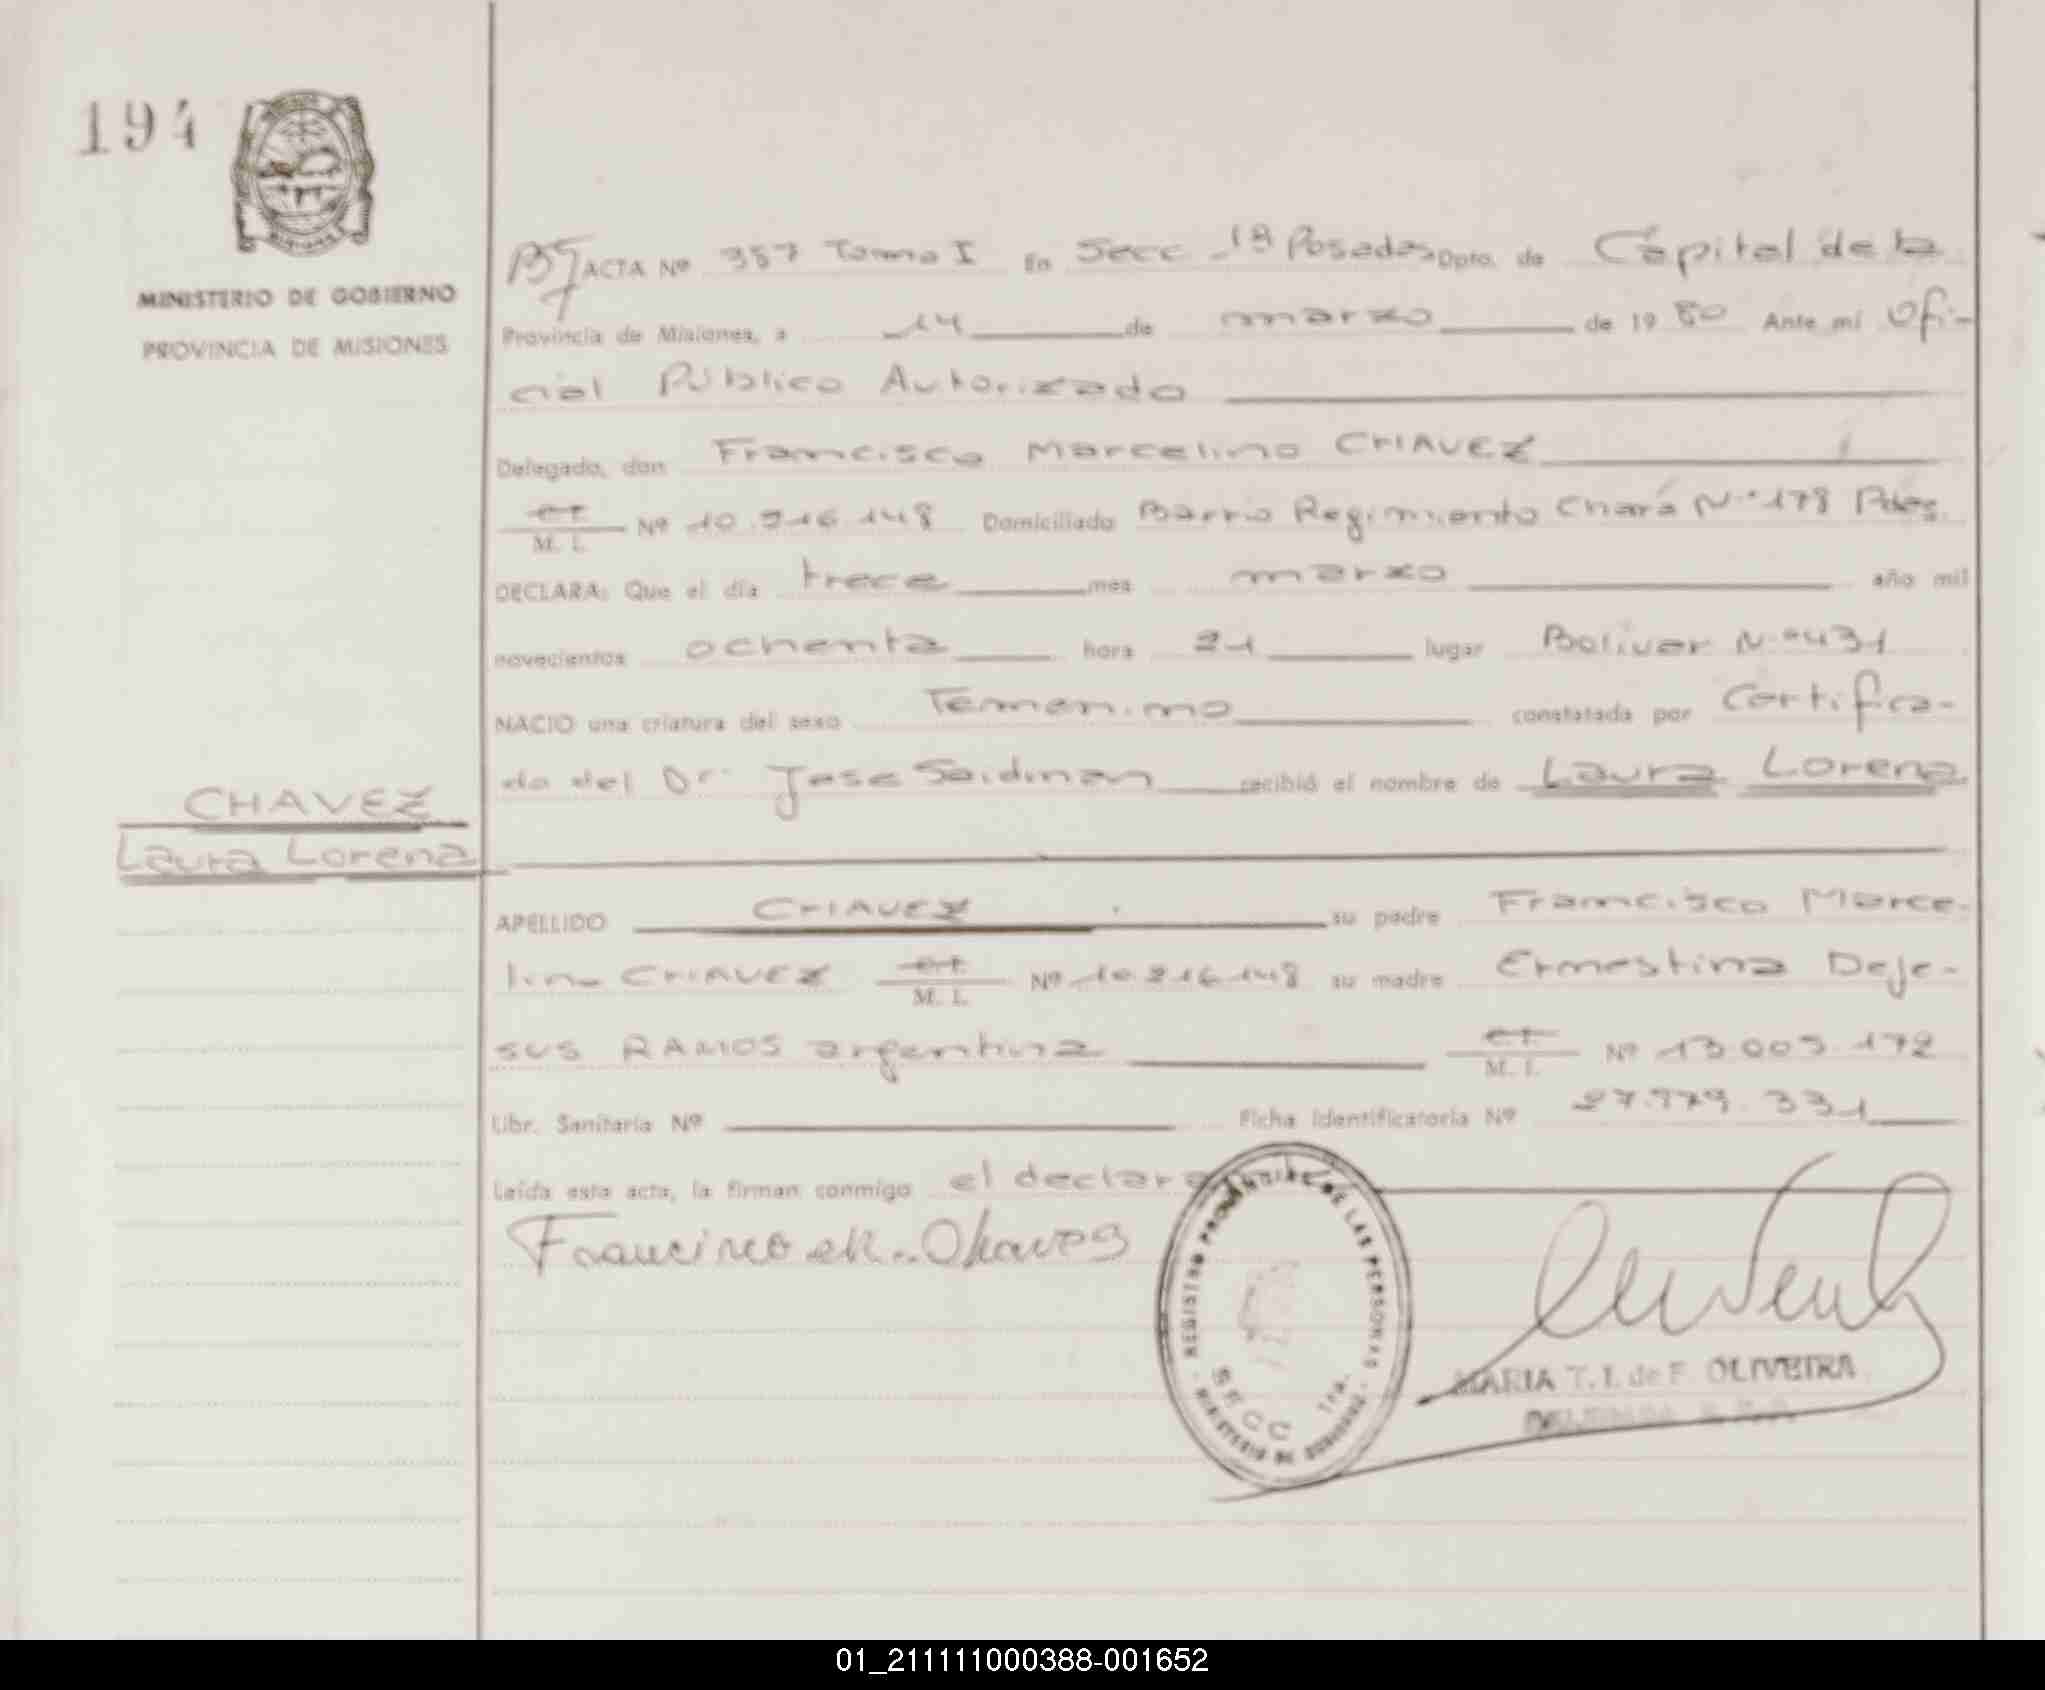 194
MINISTERIO DE GOBIERNO
PROVINCIA DE MISIONES
ACTA Nº 357 Tomo I En Secc 1ª Posadas Dpto. de Capital de la
Provincia de Misiones, a 14 de marzo de 1980 Ante mí Ofi-
cial Público Autorizado
Delegado, don Francisco Marcelino CHAVEZ
M. I. Nº 10.916.148 Domiciliado Barrio Regimiento Chara Nº 178 Pdas.
DECLARA: Que el día trece mes marzo año mil
novecientos ochenta hora 21 lugar Bolivar Nº 431
NACIO una criatura del sexo Femenino constatada por Certifica-
do del Dr. Jose Saidman recibió el nombre de Laura Lorena
CHAVEZ
Laura Lorena
APELLIDO CHAVEZ su padre Francisco Marce-
lino CHAVEZ M. I. Nº 10.916.148 su madre Ernestina Deje-
sus RAMOS argentina M. I. Nº 13.005.172
Libr. Sanitaria Nº Ficha Identificatoria Nº 27.979.331
Leída esta acta, la firman conmigo el
Francisco Chaves
REGISTRO DE LAS PERSONAS
SECC 1ra.
MINISTERIO DE GOBIERNO
MARIA T. I. de F. OLIVEIRA
01_211111000388-001652